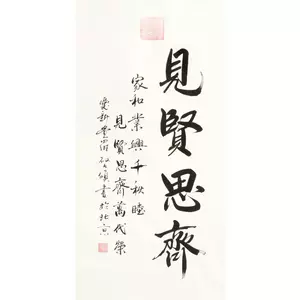 見賢思齊
家和業興千秋睦
見賢思齊萬代榮
愛新覺羅
書於北京